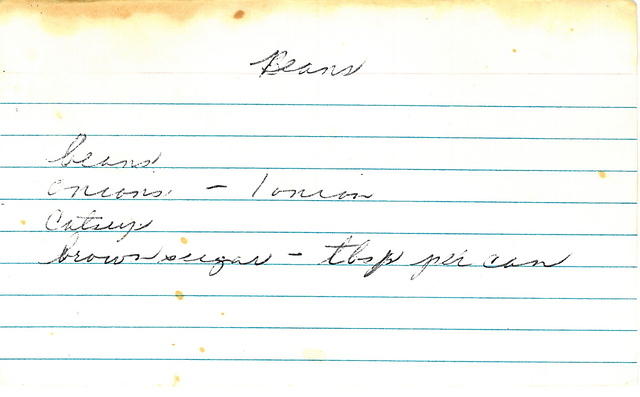 Beans
beans
onions - 1 onion
Catsup
brown sugar - tbsp per can